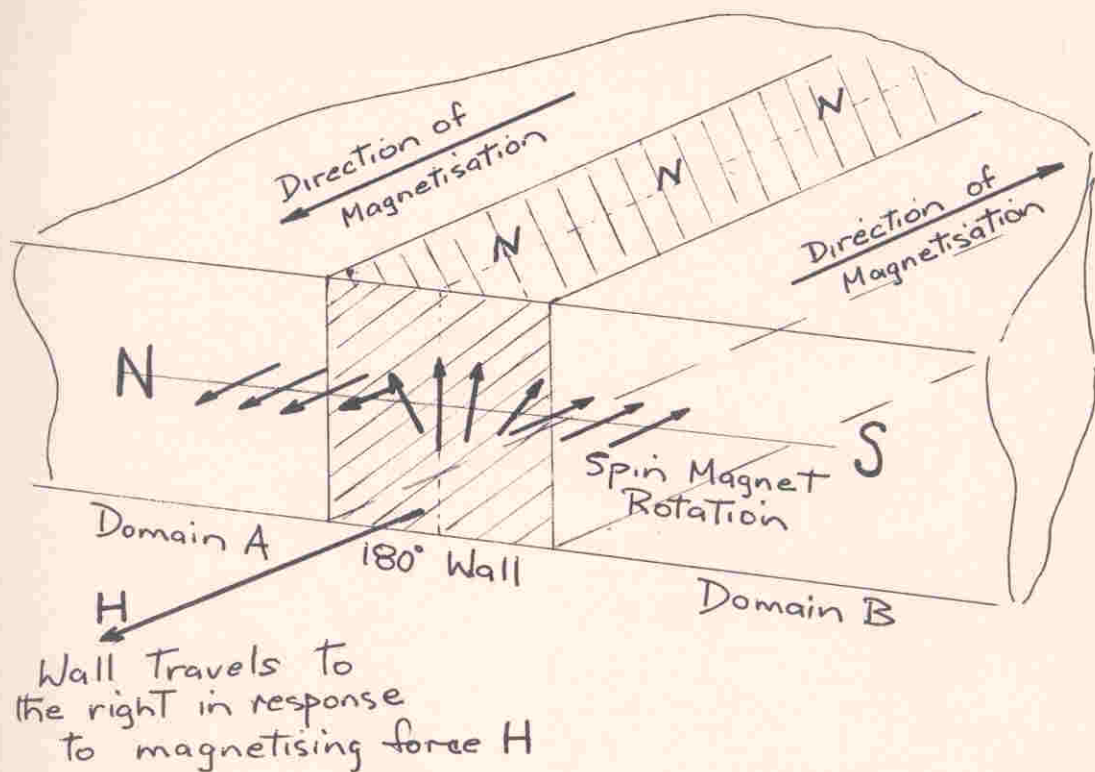 Direction of
Magnetisation
N
N
N
Direction of
Magnetisation
N
S
Spin Magnet
Rotation
Domain A
180° Wall
Domain B
H
Wall Travels to
the right in response
to magnetising force H